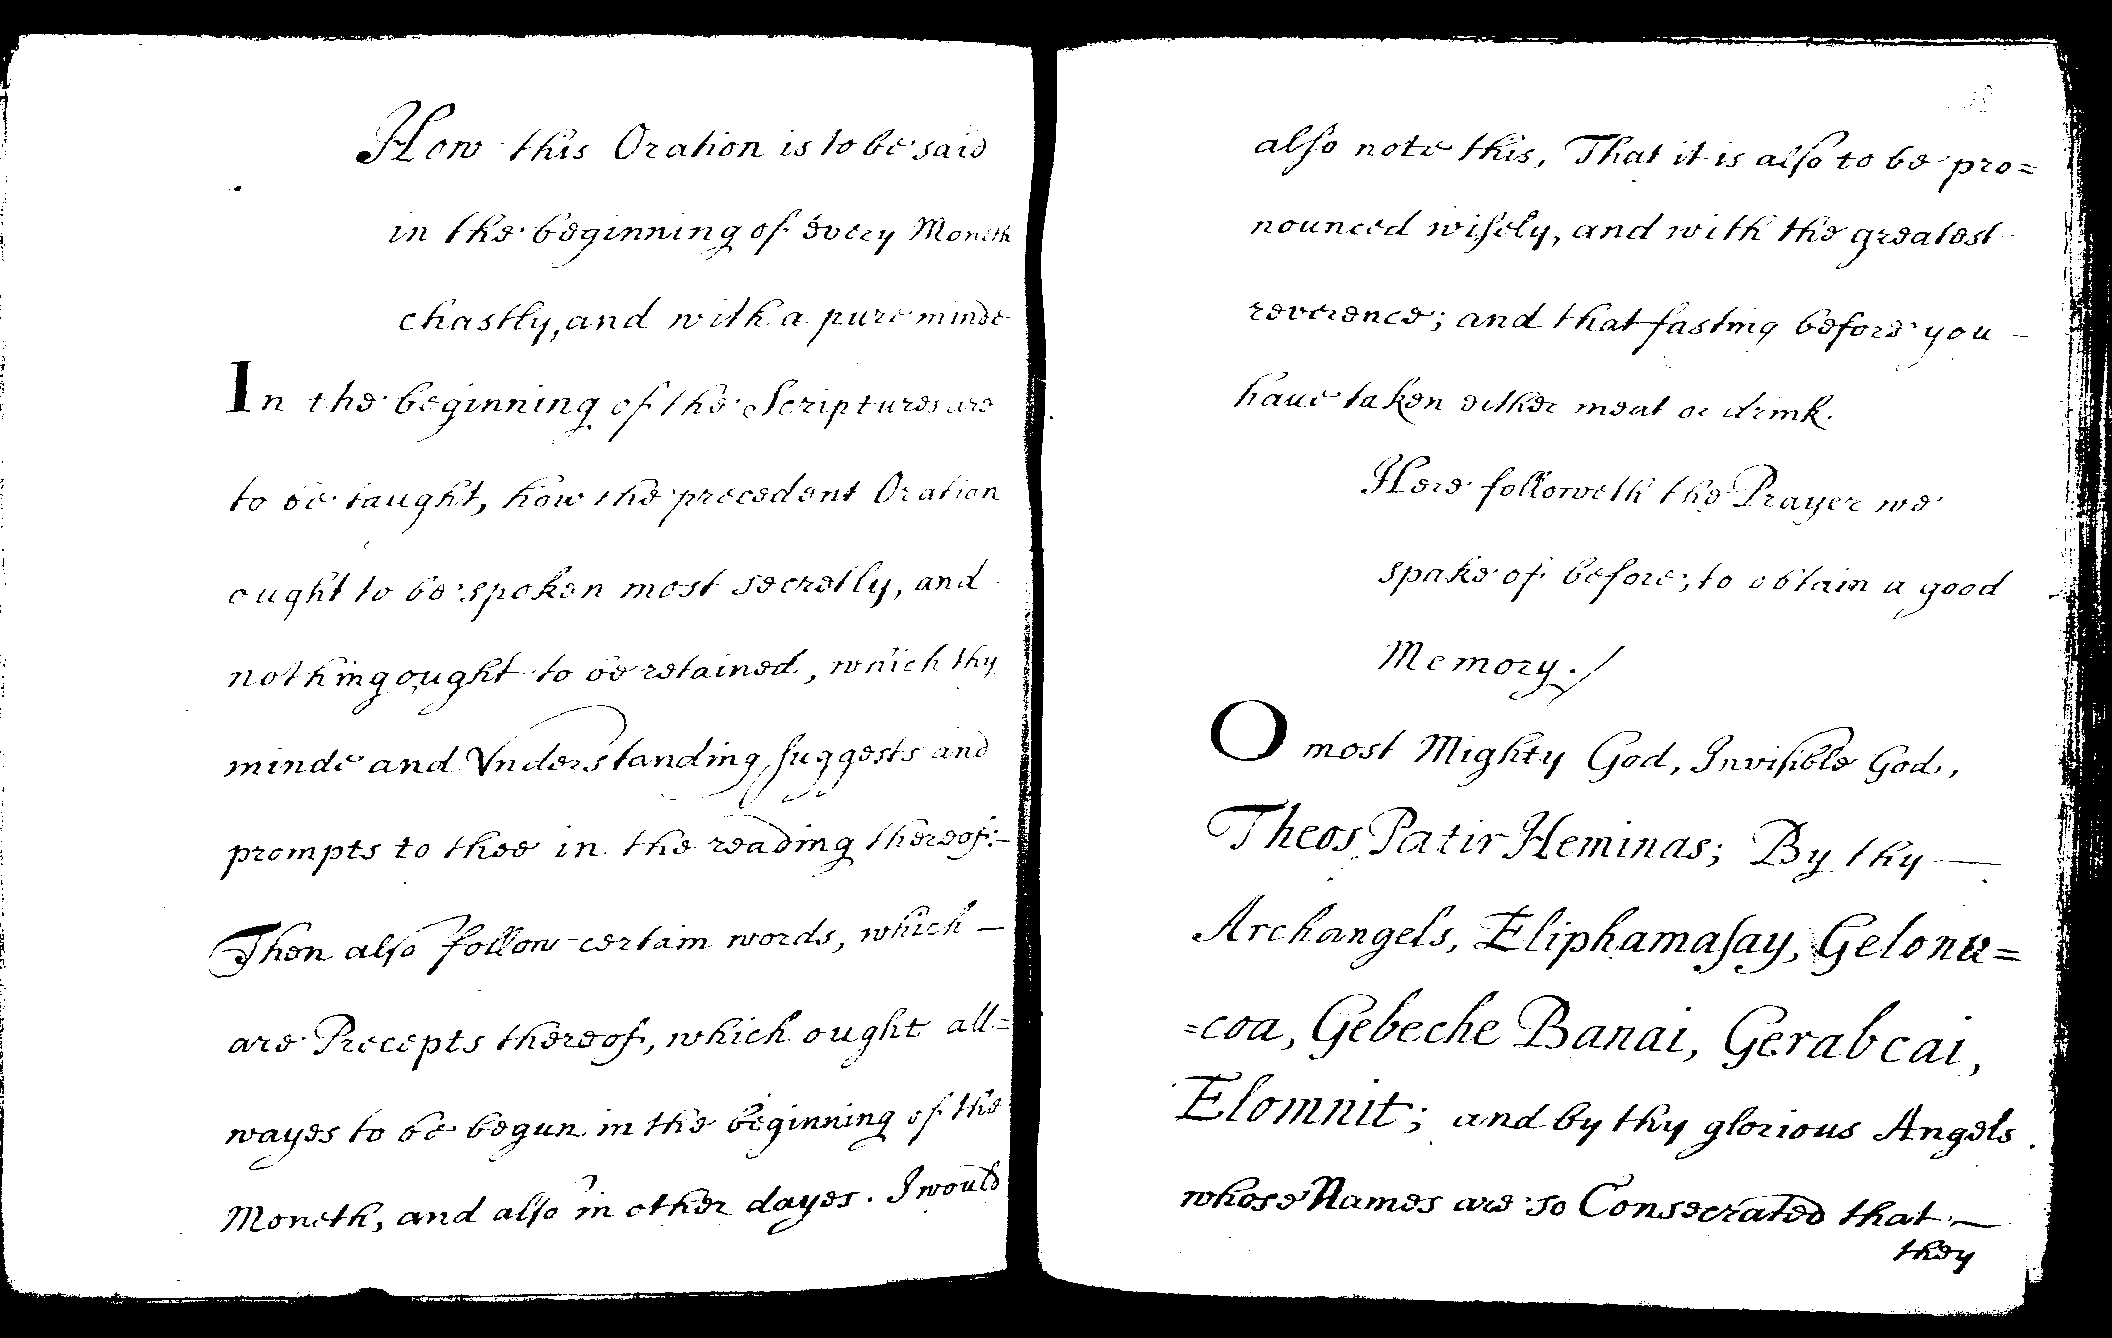 How this Oration is to be said
in the beginning of every Moneth
chastly, and with a pure minde
In the beginning of the Scriptures are
to be taught, how the precedent Oration
ought to be spoken most secretly, and
nothing ought to be retained, which thy
minde and Vnderstanding suggests and
prompts to thee in the reading thereof:-
Then also follow certain words, which —
are Precepts thereof, which ought all=
wayes to be begun in the beginning of the
Moneth, and also in other dayes. I would
also note this, That it is also to be pro=
nounced wisely, and with the greatest
reverence; and that fasting before you -
haue taken either meat or drink.
Here followeth the Prayer we
spake of before, to obtain a good
Memory./
O most Mighty God, Invisible God,
Theos Patir Heminas; By thy —
Archangels, Eliphamasay, Gelonu=
=coa, Gebeche Banai, Gerabcai,
Elomnit; and by thy glorious Angels
whose Names are so Consecrated that —
they